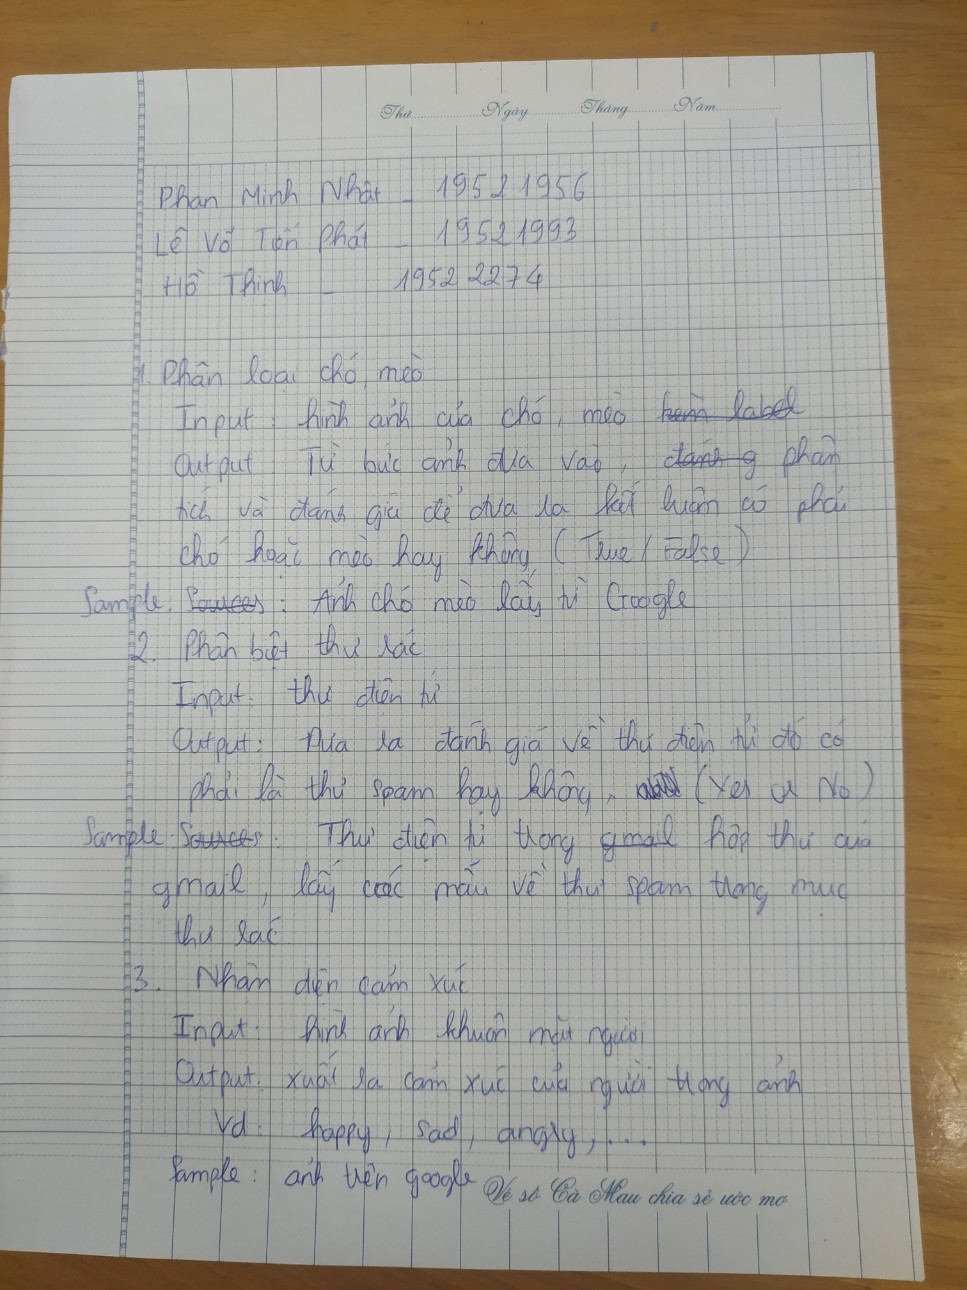 Thứ Ngày Tháng Năm
Phan Minh Nhật - 19521956
Lê Võ Tiến Phát - 19521993
Hồ Thịnh - 19522274
1. Phân loại chó, mèo
Input: hình ảnh của chó, mèo kèm label
Output Từ bức ảnh đưa vào, đánh g phân
tích và đánh giá để đưa ra kết luận có phải
chó hoặc mèo hay không (True / False)
Sample Sources: Ảnh chó mèo lấy từ Google
2. Phân biệt thư rác
Input: thư điện tử
Output: Đưa ra đánh giá về thư điện tử đó có
phải là thư spam hay không, (Yes or No)
Sample Sources: Thư điện tử trong gmail hộp thư của
gmail, lấy các mẫu về thư spam trong mục
thư rác
3. Nhận diện cảm xúc
Input: hình ảnh khuôn mặt người
Output: xuất ra cảm xúc của người trong ảnh
Vd: happy, sad, angry, ...
Sample: ảnh trên google
Vé số Cà Mau chia sẻ ước mơ